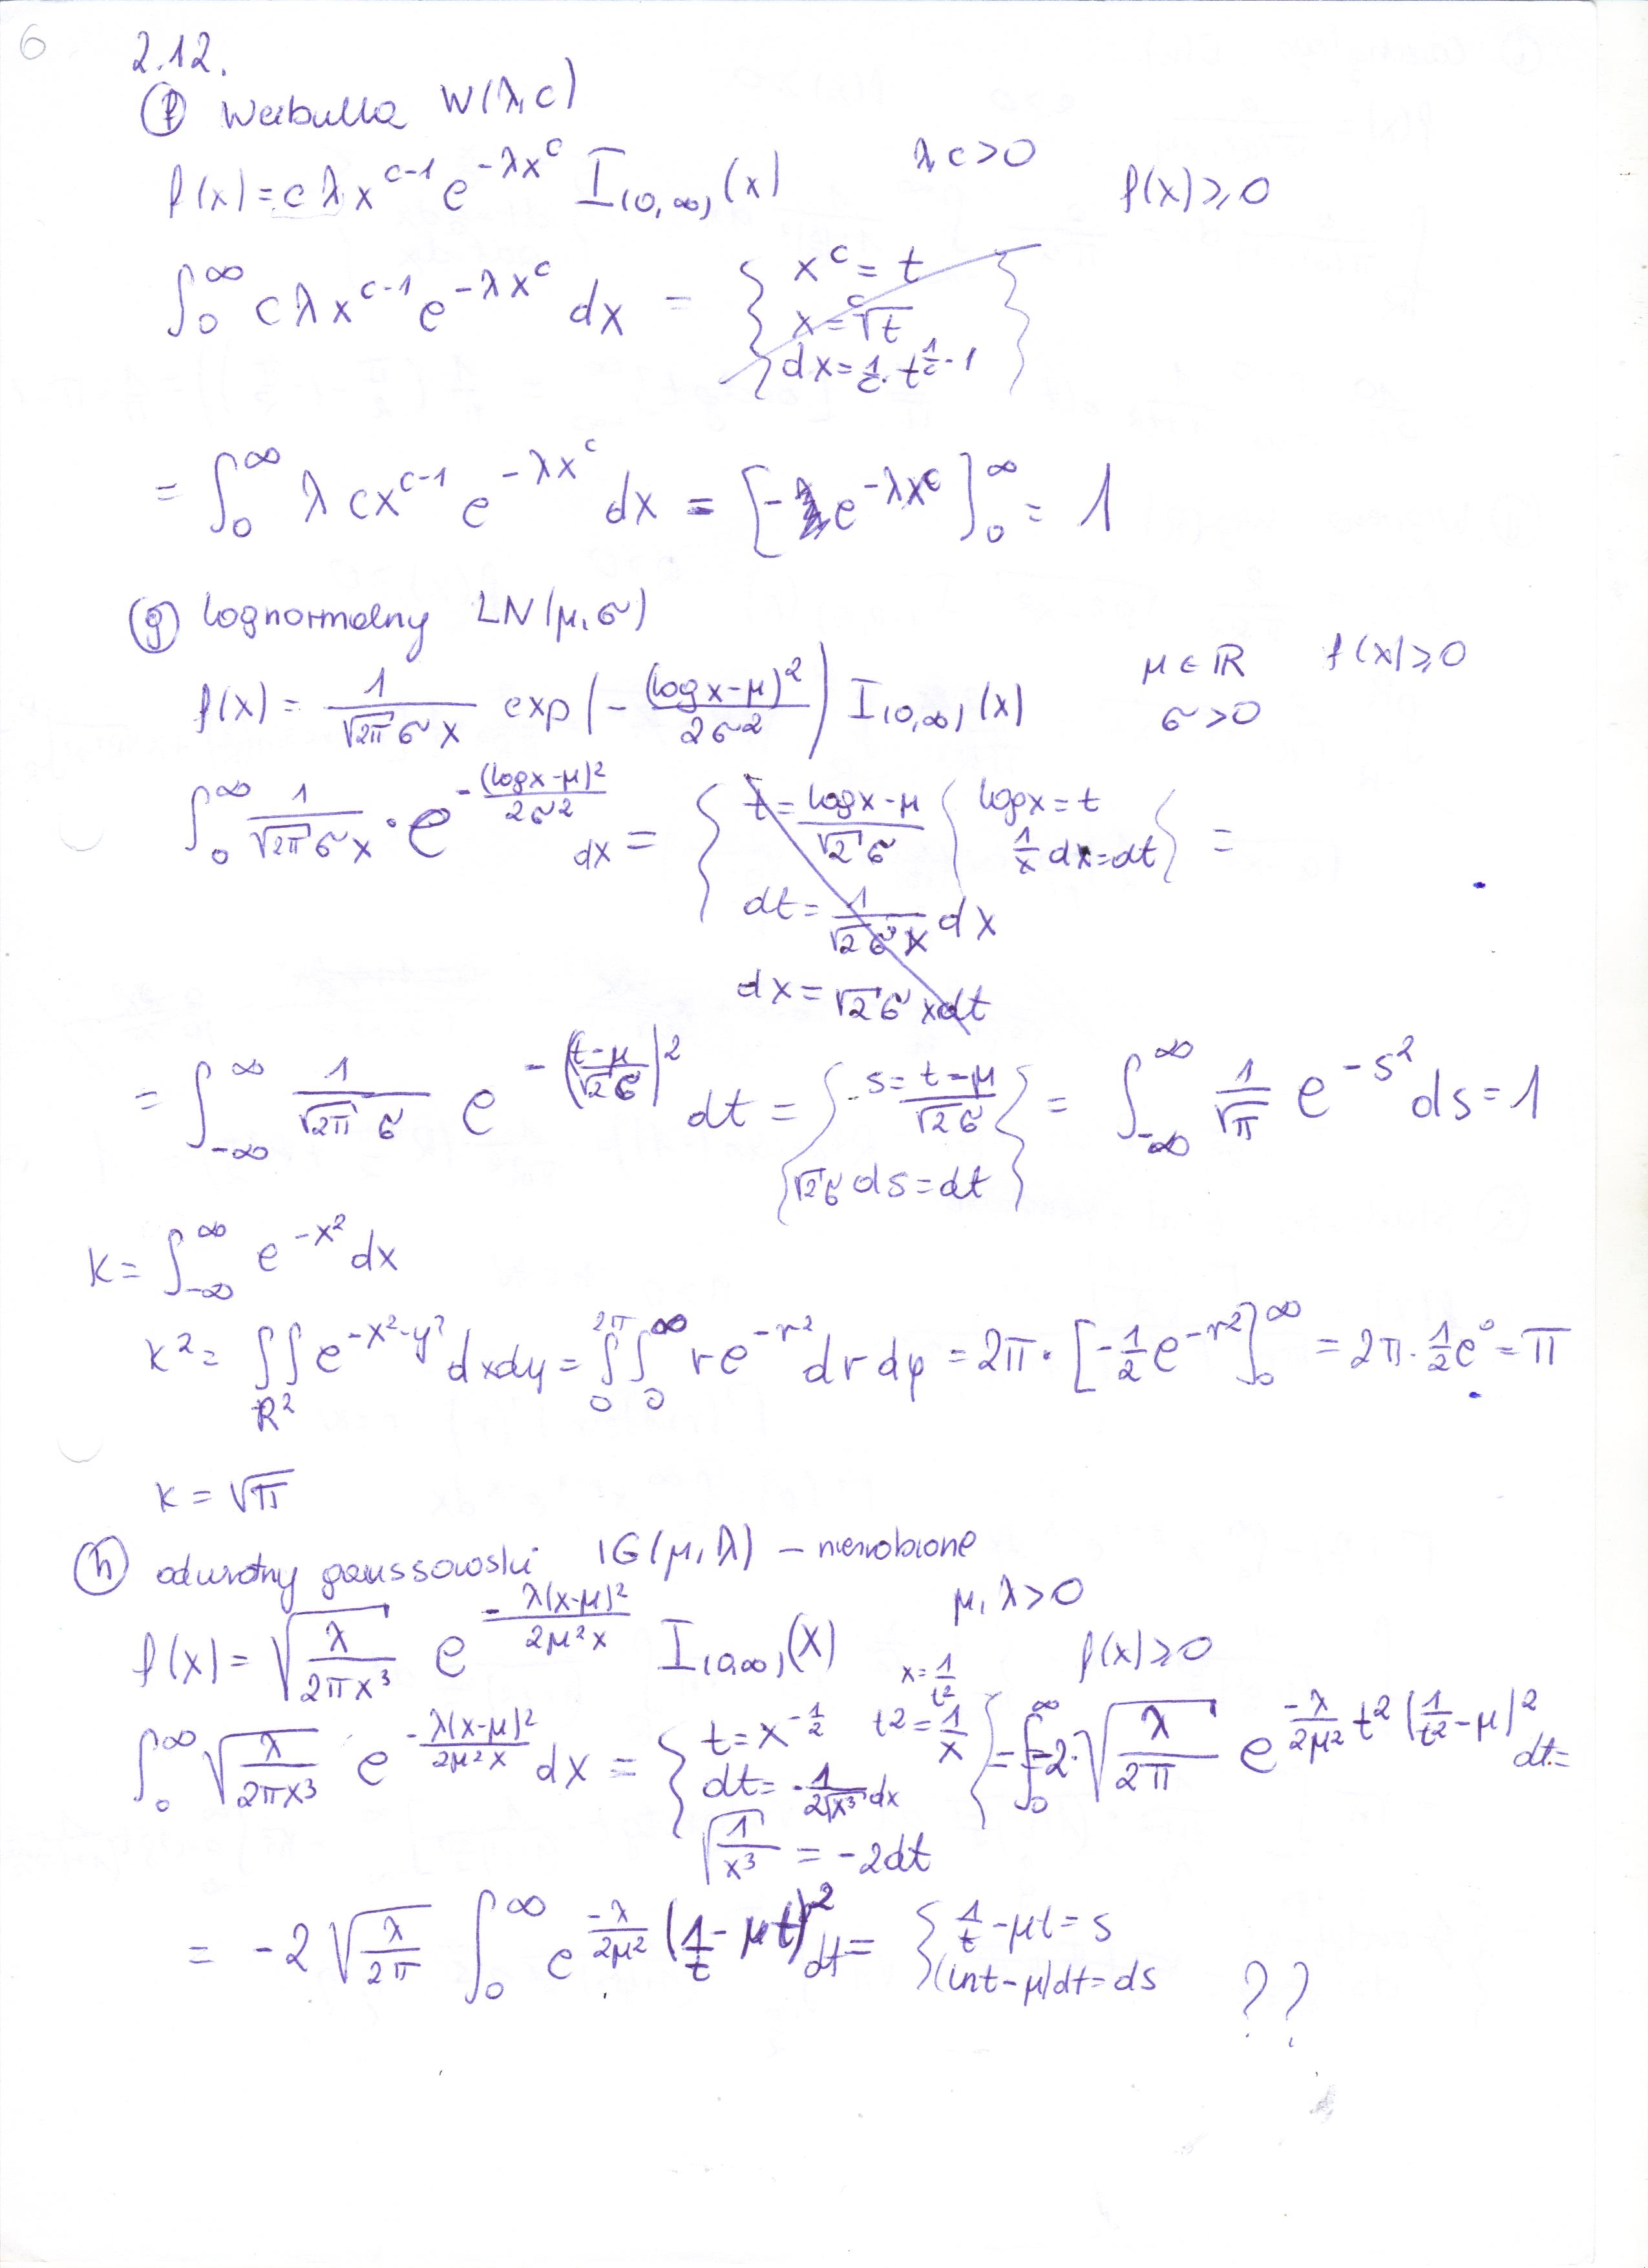 6
2.12.
(f) Weibulla W(λ,c)
f(x) = cλx^{c-1} e^{-λx^c} I_{(0,∞)}(x) λ,c>0 f(x)≥0
∫_0^∞ cλx^{c-1} e^{-λx^c} dx = { x^c = t
x = \sqrt[c]{t}
dx = 1/c · t^{1/c - 1} }
= ∫_0^∞ λcx^{c-1} e^{-λx^c} dx = [-e^{-λx^c}]_0^∞ = 1
(g) lognormalny LN(μ,σ)
f(x) = 1/(√(2π) σ x) exp(-(log x-μ)²/(2σ²)) I_{(0,∞)}(x) μ∈ℝ f(x)≥0
σ>0
∫_0^∞ 1/(√(2π) σ x) · e^{-(log x-μ)²/(2σ²)} dx = { t = (log x-μ)/(√2 σ) { log x = t
1/x dx = dt } =
dt = 1/(√2 σ x) dx
dx = √2 σ x dt
= ∫_{-∞}^∞ 1/(√(2π) σ) e^{-((t-μ)/(√2 σ))²} dt = { s = (t-μ)/(√2 σ) } = ∫_{-∞}^∞ 1/√π e^{-s²} ds = 1
√2 σ ds = dt
K = ∫_{-∞}^∞ e^{-x²} dx
K² = ∬_{R²} e^{-x²-y²} dxdy = ∫_0^{2π} ∫_0^∞ r e^{-r²} dr dφ = 2π · [-1/2 e^{-r²}]_0^∞ = 2π · 1/2 e^0 = π
K = √π
(h) odwrotny gaussowski IG(μ,λ) – niezrobione
μ,λ>0
f(x) = √(λ/(2πx³)) e^{-λ(x-μ)²/(2μ²x)} I_{(0,∞)}(x) f(x)≥0
x = 1/t²
∫_0^∞ √(λ/(2πx³)) e^{-λ(x-μ)²/(2μ²x)} dx = { t = x^{-1/2} t² = 1/x } = ∫_0^∞ -2·√(λ/(2π)) e^{-λ/(2μ²) t² (1/t²-μ)²} dt =
dt = -1/(2√x³) dx
√(1/x³) = -2dt
= -2 √(λ/(2π)) ∫_0^∞ e^{-λ/(2μ²) (1/t - μt)²} dt = { 1/t - μt = s
(ln t - μ)dt = ds ??